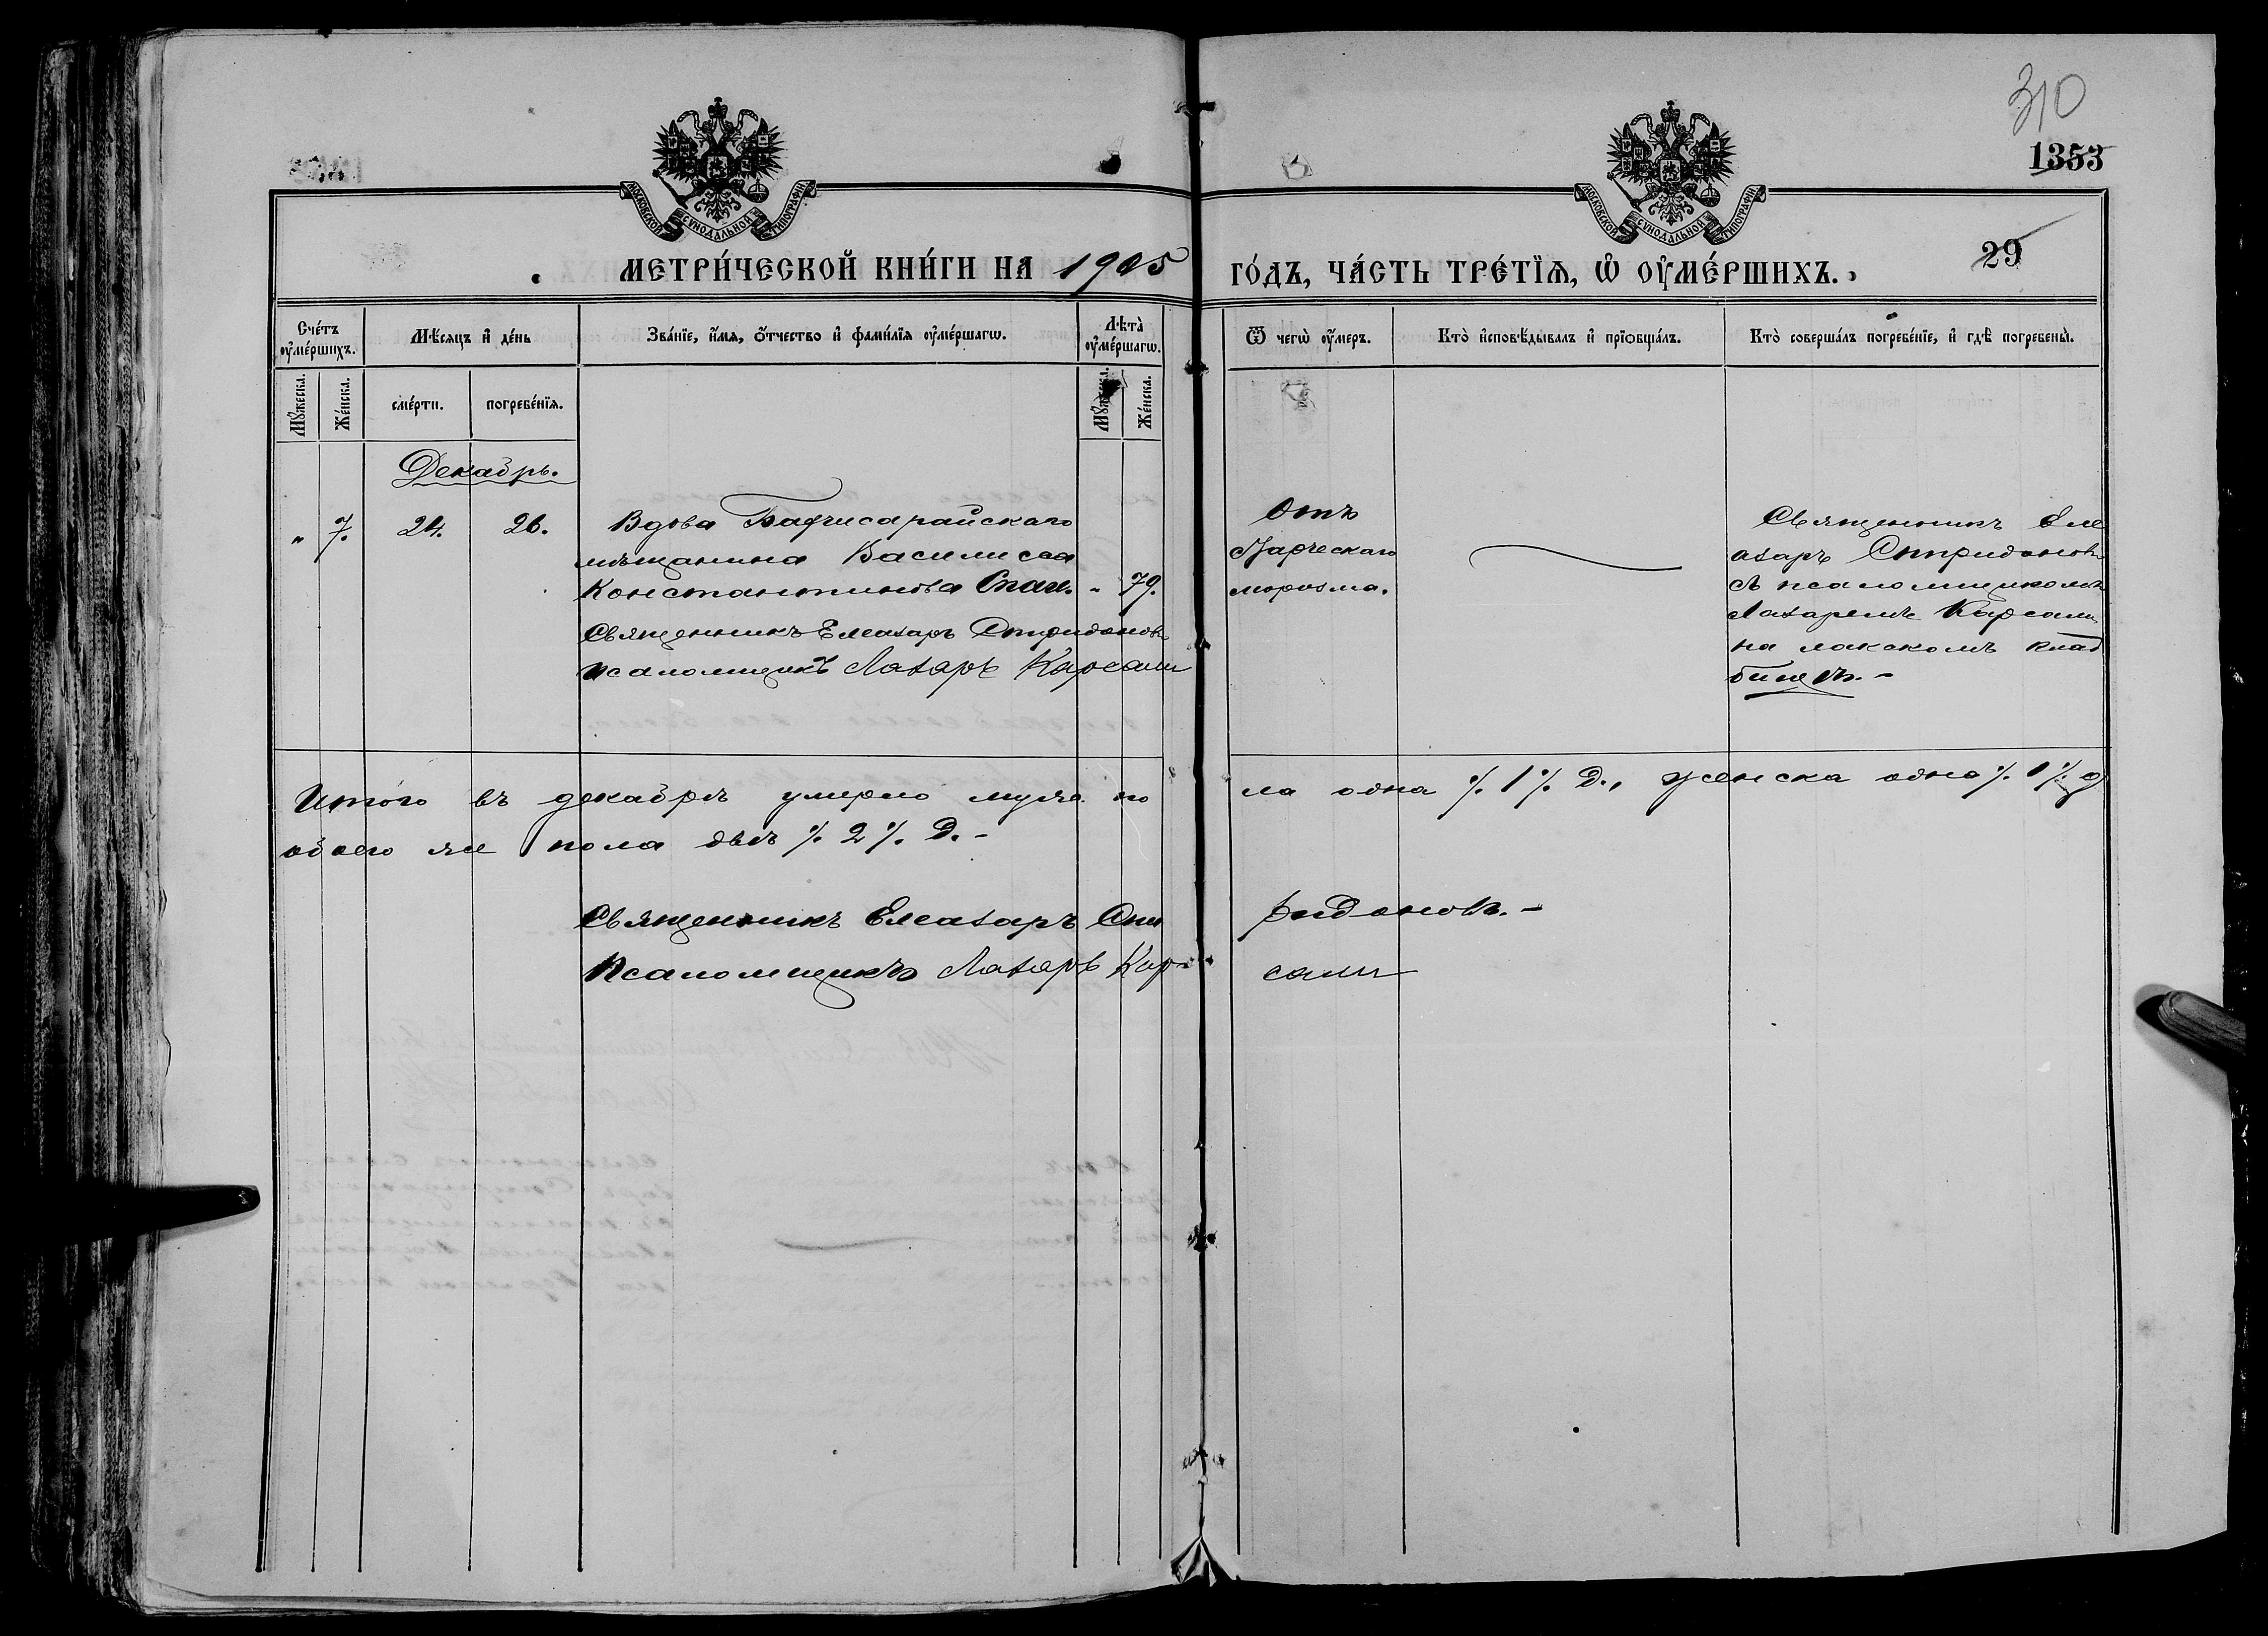 310
1353
29
МОСКОВСКОЙ СУНОДАЛЬНОЙ ТИПОГРАФІИ
МОСКОВСКОЙ СУНОДАЛЬНОЙ ТИПОГРАФІИ
МЕТРИ́ЧЕСКОЙ КНИ́ГИ НА 1905 ГО́ДЪ, ЧА́СТЬ ТРЕ́ТЇѦ, Ѡ҆ ОУ҆МЕ́РШИХЪ.
Сче́тъ оу҆ме́ршихъ.
Мѣ́сяцъ и҆ де́нь
Зва́нїе, и҆́мя, ѻ҆́тчество и҆ фами́лїя оу҆ме́ршагѡ.
Лѣта̀ оу҆ме́ршагѡ.
Ѿ чегѡ̀ оу҆́меръ.
Кто̀ и҆сповѣ́дывалъ и҆ прїѻбща́лъ.
Кто̀ соверша́лъ погребе́нїе, и҆ гдѣ̀ погребены̀.
Мꙋ́жеска.
Же́нска.
сме́рти.
погребе́нїя.
Мꙋ́жеска.
Же́нска.
Декабрь.
" 7. 24. 26.
Вдова Бахчисарайскаго
мѣщанина Василисса
Константинова Спаи. " 79.
Священникъ Елеазаръ Спиридоновъ
псаломщикъ Лазарь Карсали
Отъ
Старческаго
маразма.
Священникъ Еле
азаръ Спиридоновъ
съ псаломщикомъ
Лазаремъ Карсали
на лакскомъ клад
бищѣ.-
Итого въ декабрѣ умерло муже по ла одна %1% д., женска одна %1% д
обоего же пола двѣ %2% д.-
Священникъ Елеазаръ Спи ридоновъ.-
Псаломщикъ Лазарь Кар сали